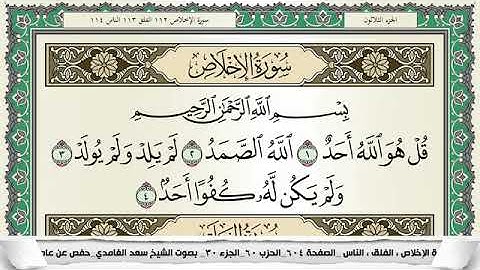 الجزء الثلاثون
سورة الإخلاص ١١٢ الفلق ١١٣ الناس ١١٤
سُورَةُ الإِخْلَاصِ
بِسْمِ اللَّهِ الرَّحْمَٰنِ الرَّحِيمِ
قُلْ هُوَ اللَّهُ أَحَدٌ ١ اللَّهُ الصَّمَدُ ٢ لَمْ يَلِدْ وَلَمْ يُولَدْ ٣
وَلَمْ يَكُن لَّهُ كُفُوًا أَحَدٌ ٤
ة الإخلاص ، الفلق ، الناس _الصفحة ٦٠٤_الحزب ٦٠_الجزء ٣٠_ بصوت الشيخ سعد الغامدي_حفص عن عاص